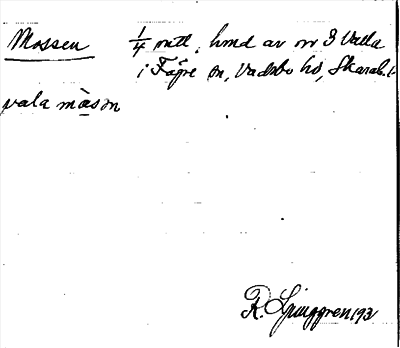 Mossen 1/4 mtl, hmd av nr 3 Valla
i Fägre sn, Vadsbo hd, Skarab. l.
vala màson
R. Ljunggren 193